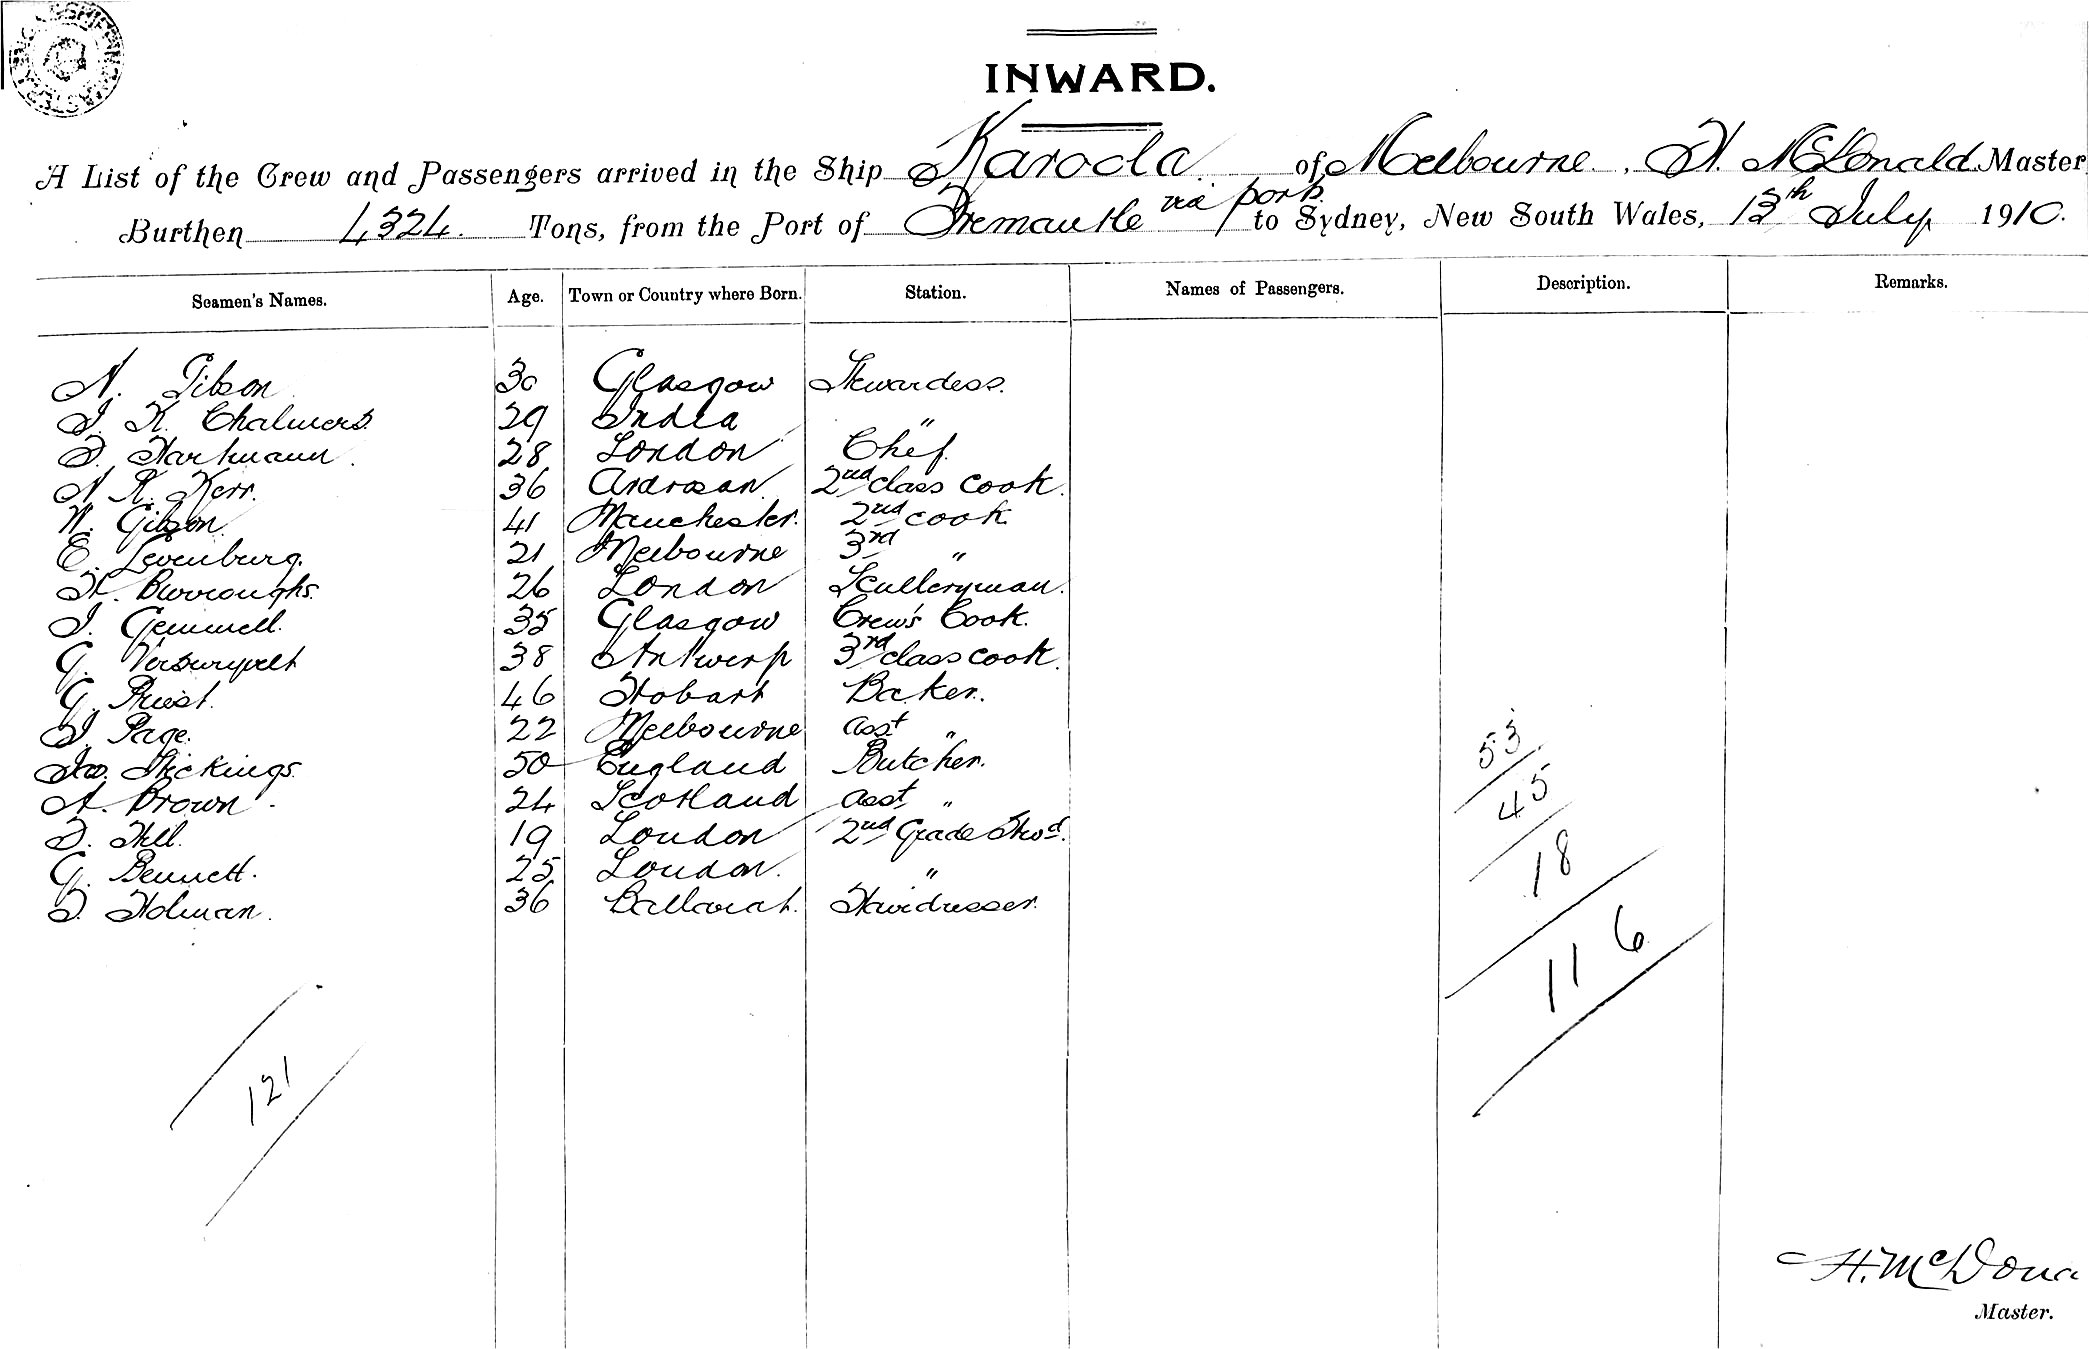 INWARD.
A List of the Crew and Passengers arrived in the Ship Karoola of Melbourne, H. McDonald Master
Burthen 4324 Tons, from the Port of Fremantle via ports to Sydney, New South Wales, 13th July 1910.
Seamen's Names. Age. Town or Country where Born. Station. Names of Passengers. Description. Remarks.
N. Gibson 30 Glasgow Stewardess.
J. K. Chalmers 29 India "
F. Hartmann 28 London Chef.
N. R. Kerr. 36 Ardrosan 2nd class Cook.
W. Gibson 41 Manchester. 2nd cook
E. Levenburg. 21 Melbourne 3rd "
H. Burroughs. 26 London Sculleryman.
J. Gemmell. 35 Glasgow Crew's Cook.
G. 38 Antwerp 3rd class cook.
G. Priest. 46 Hobart Baker.
J. Page. 22 Melbourne asst "
Hickings. 50 England Butcher.
A. Brown 24 Scotland asst "
F. Hill. 19 London 2nd Grade Stwd.
G. Bennett. 25 London. "
F. Holman. 36 Ballarat. Hairdresser.
53
45
18
116
121
H. McDona
Master.